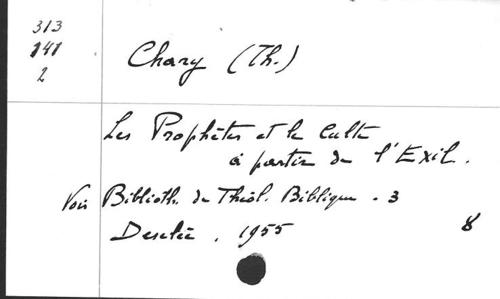 313
141
2
Chary (Th.)
Les Prophètes et le Culte
à partir de l'Exil.
Voir Biblioth. de Théol. Biblique. 3
Desclée. 1955
8